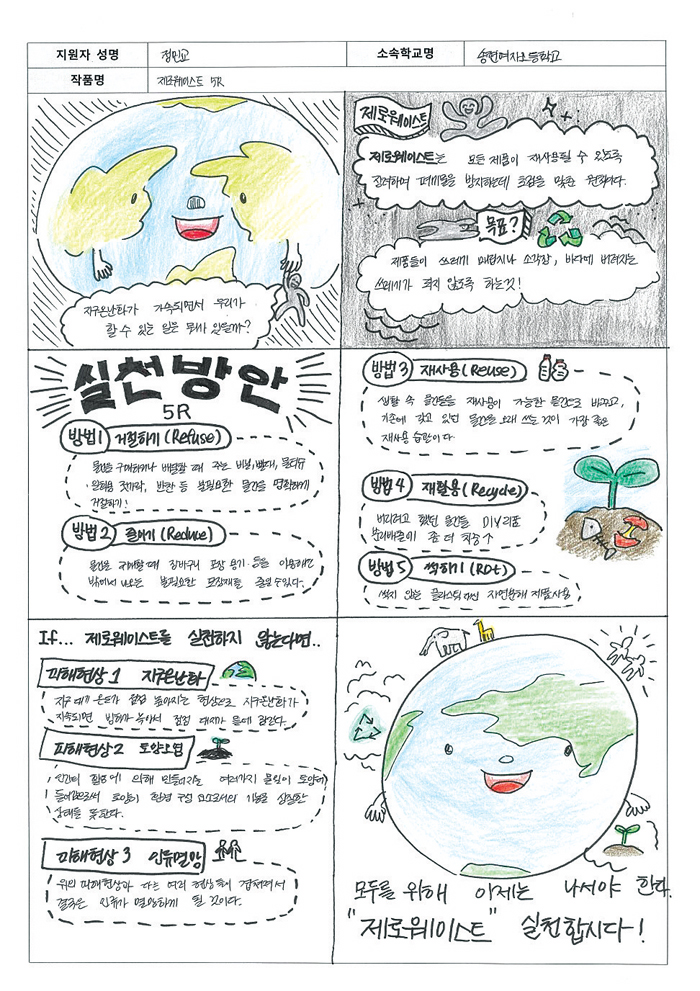 지원자 성명
소속학교명
송현여자고등학교
작품명
제로웨이스트 5R
지구온난화가 가속되면서 우리가
할 수 있는 일은 무엇이 있을까?
제로웨이스트
제로웨이스트는 모든 제품이 재사용될 수 있도록
장려하며 폐기물을 방지하는데 초점을 맞춘 원칙이다.
목표?
제품들이 쓰레기 매립지나 소각장, 바다에 버려지는
쓰레기가 되지 않도록 하는것!
실천방안
5R
방법1 거절하기(Refuse)
물건을 구매하거나 배달할 때 주는 비닐,빨대, 물티슈
일회용 젓가락, 반찬 등 불필요한 물건을 명확하게
거절하기!
방법2 줄이기(Reduce)
물건을 구매할 때 장바구니 포장 용기 등을 이용하면
불필요한 포장재를 줄일 수 있다.
방법3 재사용(Reuse)
생활 속 물건들을 재사용이 가능한 물건으로 바꾸고,
기존에 갖고 있던 물건을 오래 쓰는 것이 가장 좋은
재사용 습관이다
방법4 재활용(Recycle)
버리려고 했던 물건들 DIY리폼
분리배출이 좀 더 직장↑
방법5 썩히기(Rot)
썩지 않는 플라스틱 대신 자연분해 제품사용
If... 제로웨이스트를 실천하지 않는다면..
피해현상1 지구온난화
지구 대기 온도가 점점 높아지는 현상으로 지구온난화가
지속되면 빙하가 녹아서 점점 대지가 물에 잠긴다.
피해현상2 토양오염
인간의 활동에 의해 만들어지는 여러가지 물질이 토양에
들어감으로서 토양이 환경 구성 요소로서의 기능을 상실한
상태를 뜻한다.
피해현상3 인류멸망
위의 피해현상과 다른 여러 현상들이 겹쳐져서
결국은 인류가 멸망하게 될 것이다.
모두를 위해 이제는 나서야 한다.
"제로웨이스트" 실천합시다!